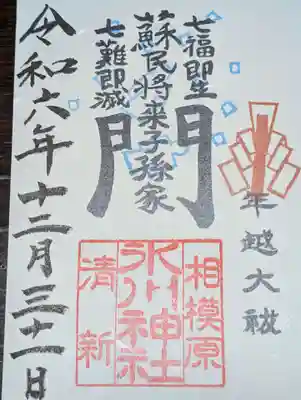 年越大祓
七福即生
蘇民将来子孫家
門
七難即滅
相模原
氷川神社
清新
令和六年十二月三十一日